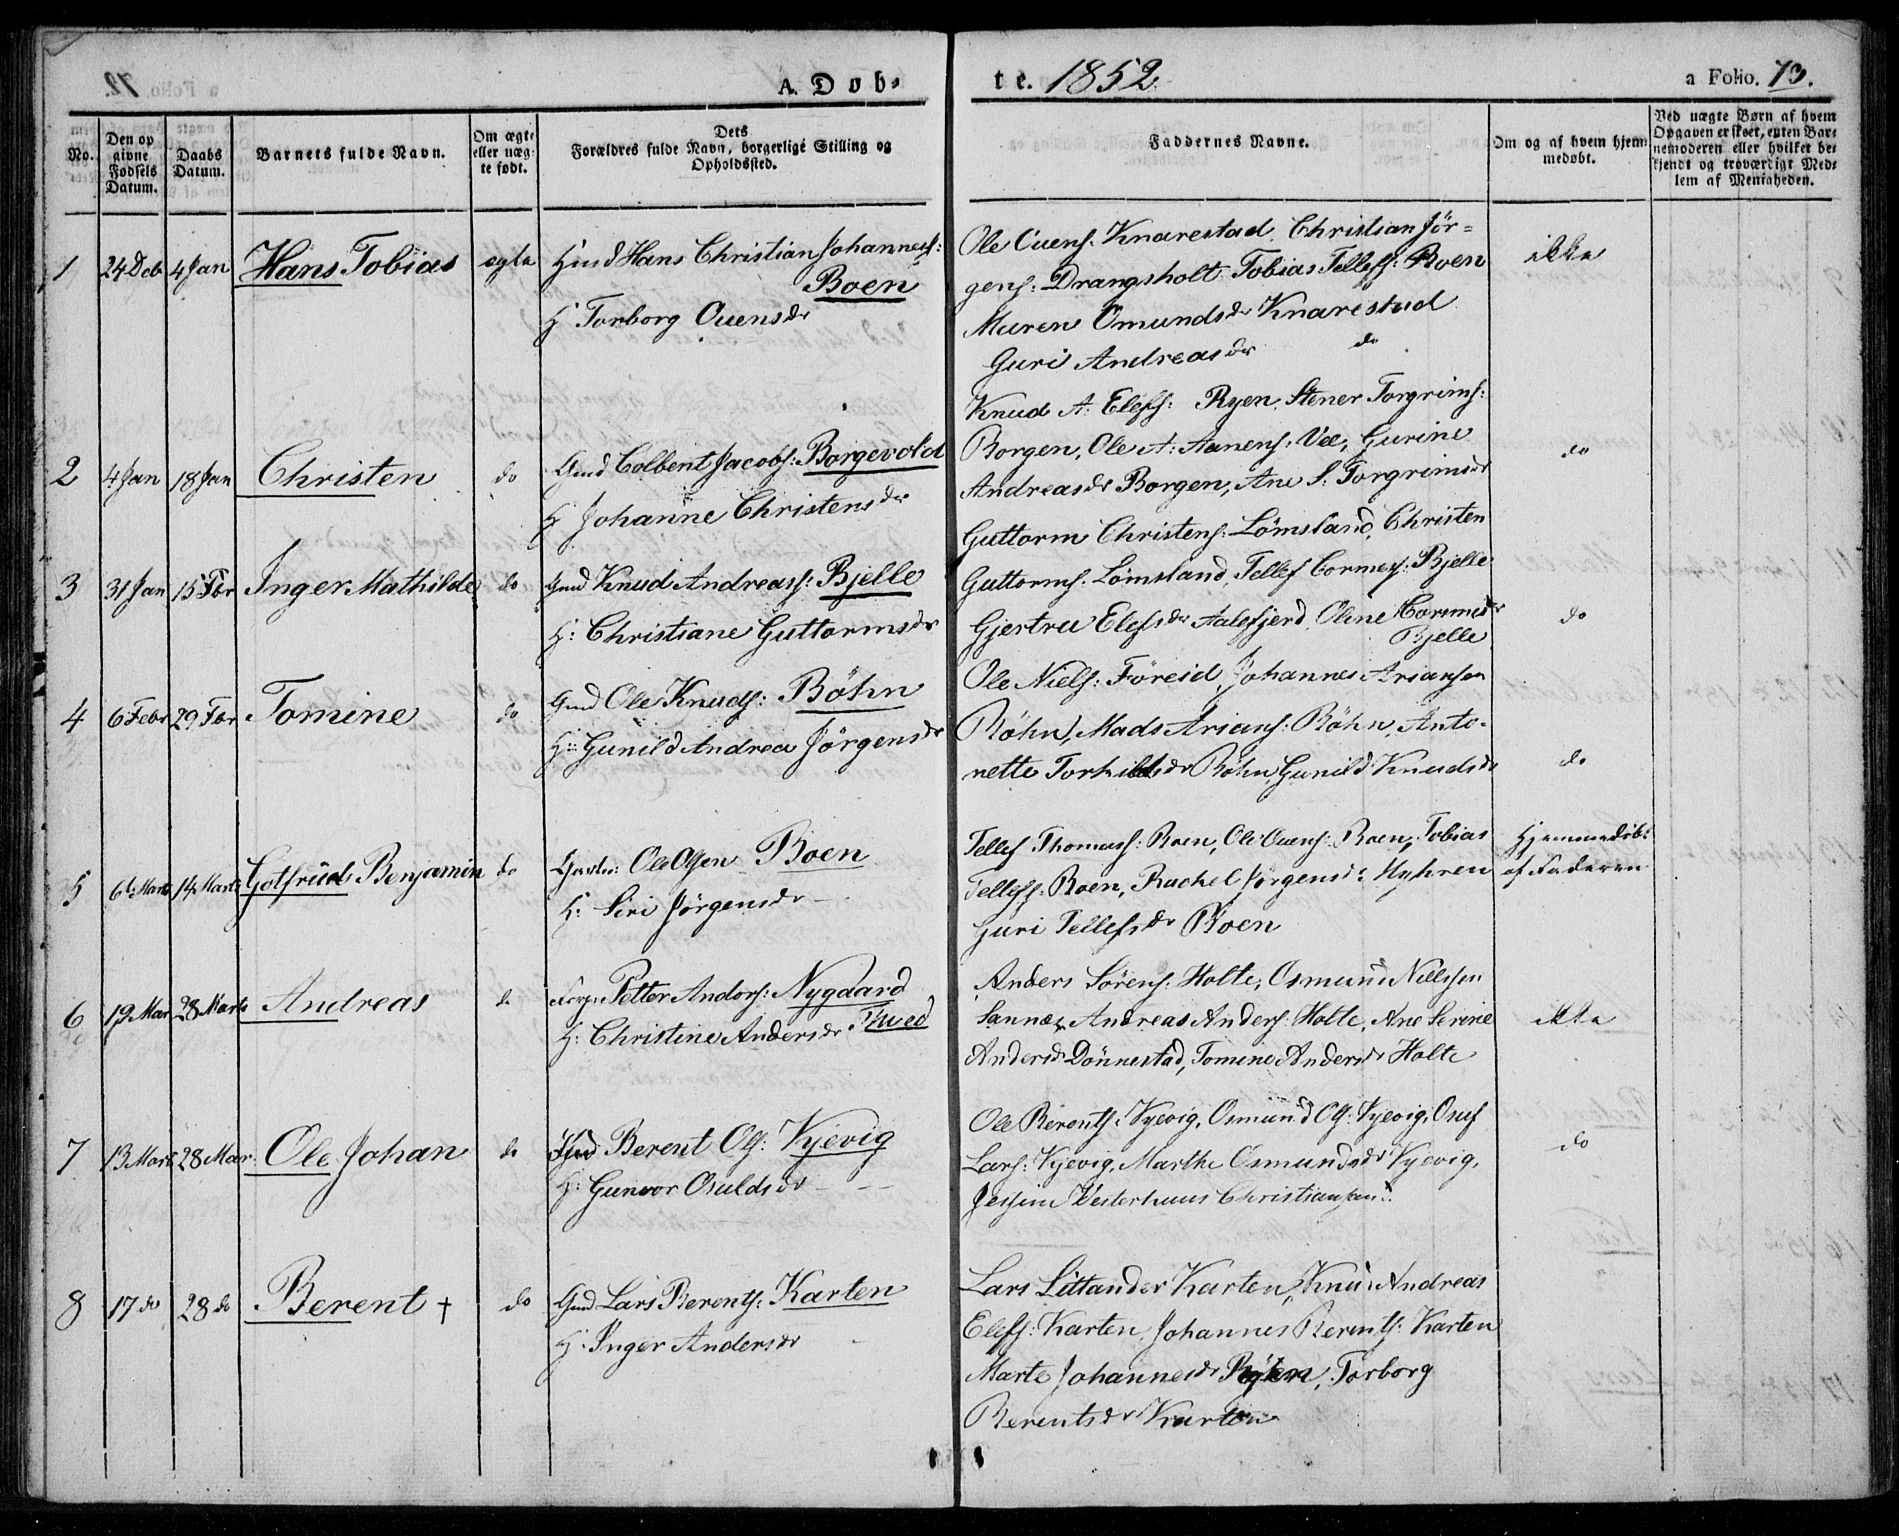 A. Døb-
te. 1852
a Folio. 73.
No.
Den op
givne
Fødsels
Datum.
Daabs
Datum.
Barnets fulde Navn.
Om ægte
eller uæg-
te født.
Dets
Forældres fulde Navn, borgerlige Stilling og
Opholdssted.
Faddernes Navne.
Om og af hvem hjem-
medøbt.
Ved uægte Børn af hvem
Opgaven er skeet, enten Bar-
nemoderen eller hvilket be-
kjendt og troværdigt Med-
lem af Menigheden.
1 24 Deb 4 Jan Hans Tobias ægte Hans Christian Johannes:
Boen
H: Torborg Ouensdr
Ole Ouens: Knarestad, Christian Jør-
gens: Drangsholt, Tobias Tellefs: Boen
Maren Omundsdr Knarestad
Guri Andreasdr do
ikke
2 4 Jan 18 Jan Christen do Gmd Colbent Jacobs: Borgevold
H Johanne Christensdr
Knud A: Elefs: Ryen, Stener Torgrims:
Borgen, Ole A: Aanens: Vee, Gurine
Andreasdr Borgen, Ane S: Torgrimsdr
do
3 31 Jan 15 Feb Inger Mathilde do Gmd Knud Andreass: Bjelle
H: Christiane Guttormsdr
Guttorm Christens: Lömsland, Christen
Guttorms: Lömsland, Tellef Cormes: Bjelle
Gjertru Elefsdr Aalefjerd, Oline Cormesdr
Bjelle
do
4 6 Febr 29 Febr Tomine do Gmd Ole Knuds: Böhn
H: Gunild Andrea Jörgensdr
Ole Niels: Föreid, Johannes Ariansen
Böhn, Mads Arians: Böhn, Anto-
nette Torkildsdr Böhn, Gunild Knudsdr
do
5 6t Marts 14 Marts Gotfried Benjamin do Ole Olsen Boen
H: Siri Jörgensdr
Tellef Thomass: Boen, Ole Ouens: Boen, Tobias
Tellefs: Boen, Rachel Jörgensdr Myhren
Guri Tellefsdr Boen
Hjemmedöbt
af Faderen
6 19 Mar 28 Marts Andreas do Petter Anders: Nygaard
H: Christine Andersdr Tved
Anders Sörens: Holte, Osmund Nielssen
Sannæs, Andreas Anders: Holte, Ane Serine
Andersdr Dönnestad, Tomine Andersdr Holte
ikke
7 13 Marts 28 Mar Ole Johan do Berent Ols: Vyevig
H: Gunvor Osuldsdr
Ole Berents: Vyevig, Osmund Ols: Vyevig, Osuf
Lars: Vyevig, Marthe Osmundsdr Vyevig,
Jessine Vesterhuus Christiansand:
do
8 17 do 28 do Berent + do Gmd Lars Berents: Karten
H: Inger Andersdr
Lars Littander Karten, Knud Andreas
Elefs: Karten, Johannes Berents: Karten
Marte Johannesdr Böhn, Torborg
Berentsdr Karten